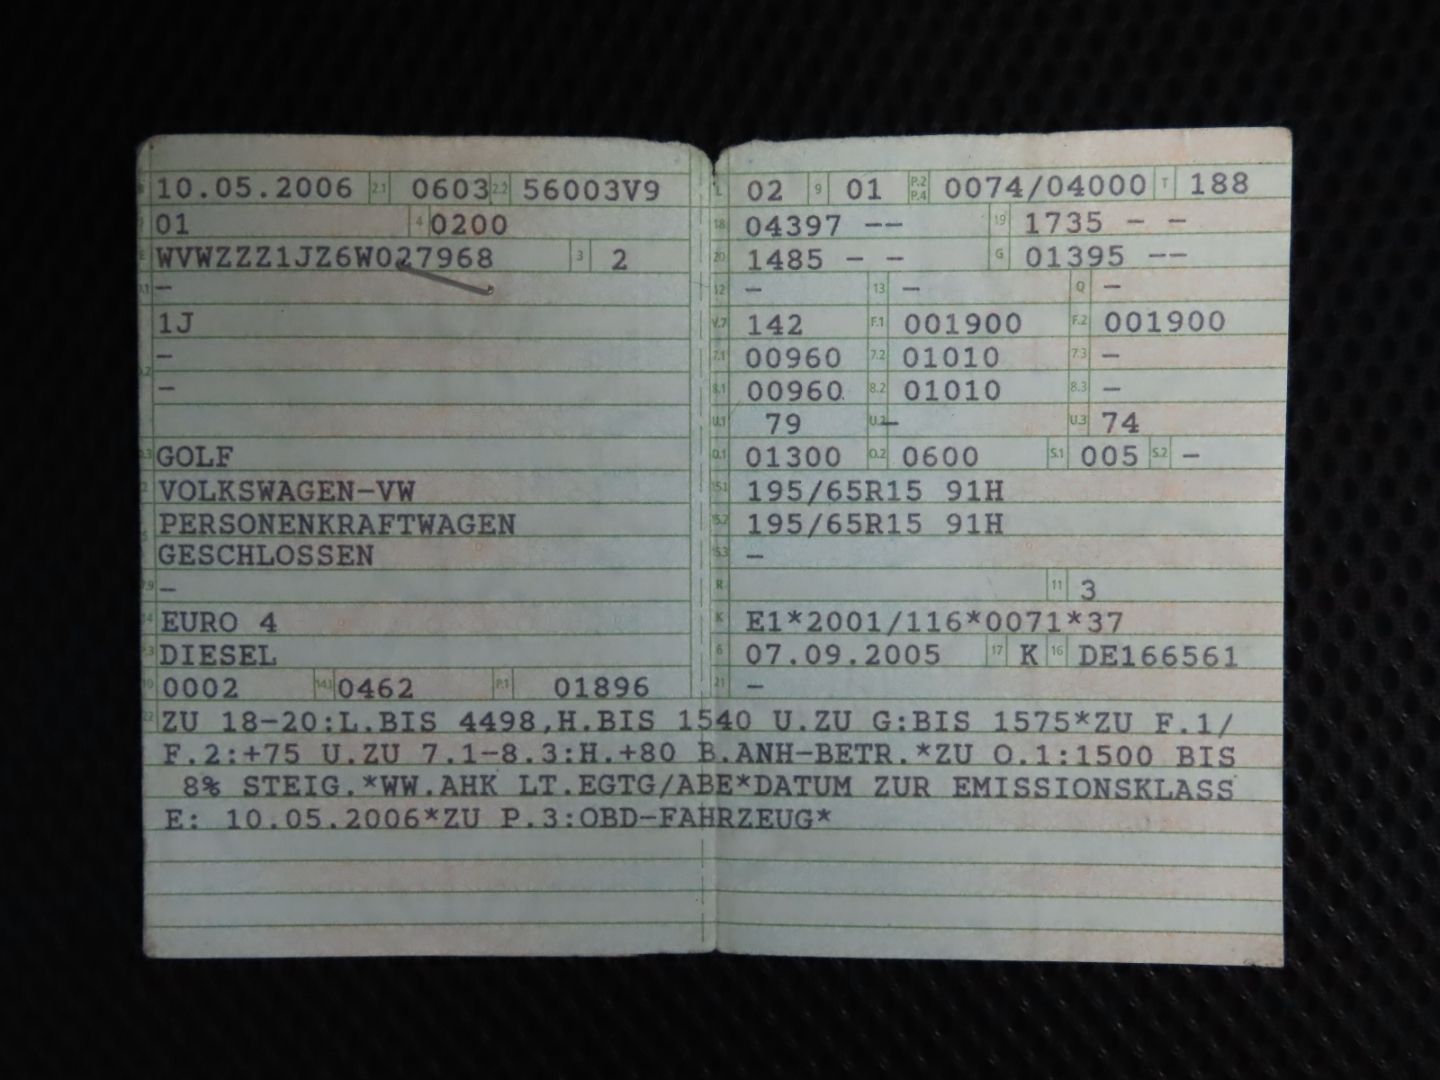 10.05.2006 2.1 0603 2.2 56003V9
01 4 0200
WVWZZZ1JZ6W027968 3 2
–
1J
–
–
GOLF
VOLKSWAGEN-VW
PERSONENKRAFTWAGEN
GESCHLOSSEN
–
EURO 4
DIESEL
0002 14.1 0462 P.1 01896
L 02 9 01 P.2 P.4 0074/04000 T 188
18 04397 –– 19 1735 – –
20 1485 – – G 01395 ––
12 – 13 – Q –
V.7 142 F.1 001900 F.2 001900
7.1 00960 7.2 01010 7.3 –
8.1 00960 8.2 01010 8.3 –
U.1 79 U.2 – U.3 74
O.1 01300 O.2 0600 S.1 005 S.2 –
15.1 195/65R15 91H
15.2 195/65R15 91H
15.3 –
R 11 3
K E1*2001/116*0071*37
6 07.09.2005 17 K 16 DE166561
21 –
22 ZU 18-20:L.BIS 4498,H.BIS 1540 U.ZU G:BIS 1575*ZU F.1/
F.2:+75 U.ZU 7.1-8.3:H.+80 B.ANH-BETR.*ZU O.1:1500 BIS
8% STEIG.*WW.AHK LT.EGTG/ABE*DATUM ZUR EMISSIONSKLASS
E: 10.05.2006*ZU P.3:OBD-FAHRZEUG*